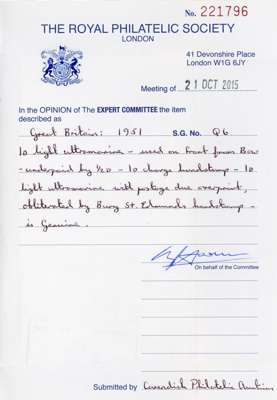 No. 221796
THE ROYAL PHILATELIC SOCIETY
LONDON
41 Devonshire Place
London W1G 6JY
Meeting of 21 OCT 2015
In the OPINION of The EXPERT COMMITTEE the item
described as
Great Britain: 1951 S.G. No. Q6
1d light ultramarine - used on front from
- underpaid by ½d - 1d charge handstamp - 1d
light ultramarine with postage due overprint,
obliterated by Bury St. Edmunds handstamp -
is Genuine.
On behalf of the Committee
Submitted by Cavendish Philatelic Auctions